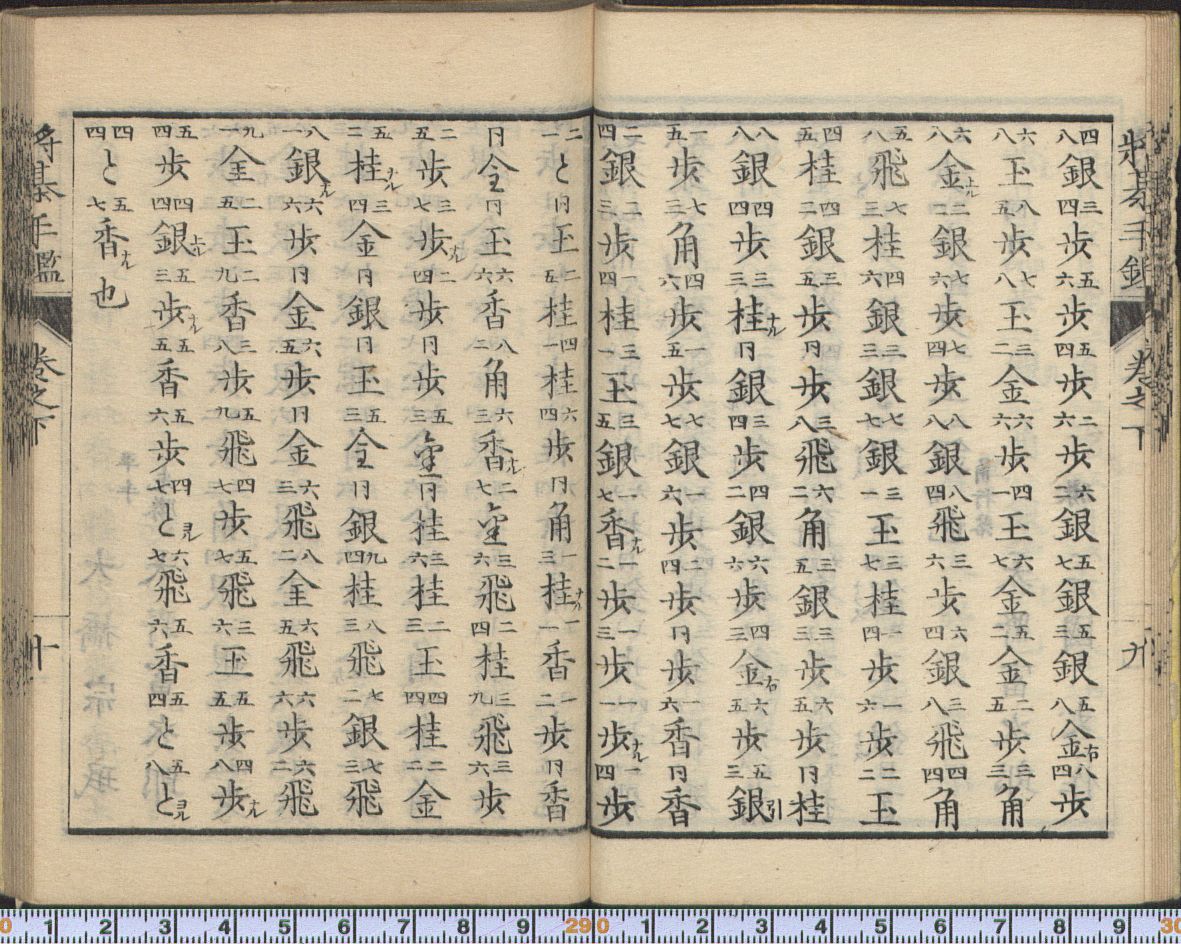 将棊手鑑 巻之下 九
四八銀 三四歩 五六歩 五四歩 二六歩 六二銀 五七銀 五三銀 五八金右 八四歩
六八玉 八五歩 七八玉 三二金 六六歩 四一玉 六七金 五二金 二五歩 三三角
六八金上ル 二二銀 七六歩 七四歩 八八銀 八四飛 三六歩 六四銀 三八飛 四四角
五八飛 七三桂 四六銀 三三銀 七七銀 三一玉 三七桂 一四歩 一六歩 二二玉
四五桂 四二銀 三五歩 同歩 三八飛 六二角 三五銀 三三歩 六五歩 同桂
八八歩 四四歩 三三桂ナル 同銀 三四歩 四二銀 六六歩 四三金右 六五歩 五三銀引
一五歩 七三角 四六歩 一五歩 一七銀 一六歩 二四歩 同歩 一六香 同香
二四銀 二三歩 一四桂 三一玉 三五銀 一七香ナル 一二歩 一三歩 一一歩ナル 一四歩
二一と 同玉 二五桂 四一桂 六四歩 同角 一三桂ナル 一一香 一二歩 同香
同全 同玉 六六香 八二角 六三香ナル 二七金 三六飛 二四桂 三九飛 三六歩
二五歩 三七歩ナル 二四歩 同歩 五三金 同桂 三六桂 二三玉 四四桂 二二金
五二桂ナル 三四金 同銀 同玉 五三全 同銀 九四桂 八三飛 七二銀 七三飛
八一銀ナル 六六歩 同金 六五歩 同金 六三飛 八二全 六五飛 六六歩 六二飛
九一全 二五玉 二九香 三八歩 五九飛 四七歩 五七飛 三六玉 五五歩 四八歩ナル
五四歩 四四銀上ル 五三歩ナル 五五香 五六歩 四七とヨル 六七飛 五六香 五四と 五八とヨル
四四と 五七香ナル也
将棊手鑑 巻之下 十